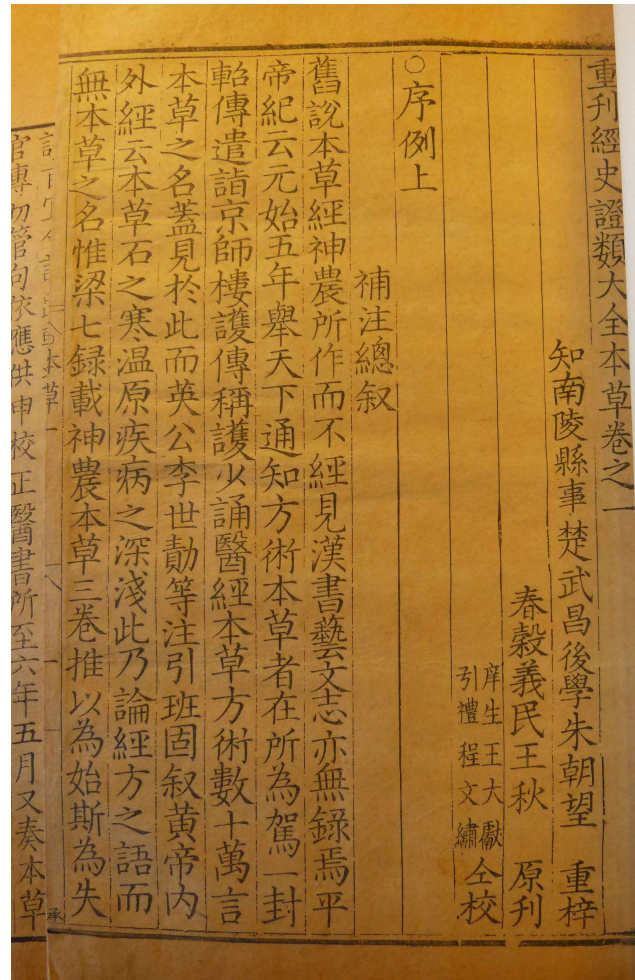 重刊經史證類大全本草卷之一
知南陵縣事楚武昌後學朱朝望 重梓
春穀義民王秋 原刊
庠生王大獻
引禮程文繡 仝校
○序例上
補注總叙
舊說本草經神農所作而不經見漢書藝文志亦無錄焉平
帝紀云元始五年舉天下通知方術本草者在所為駕一封
軺傳遣詣京師樓護傳稱護少誦醫經本草方術數十萬言
本草之名蓋見於此而英公李世勣等注引班固叙黃帝內
外經云本草石之寒温原疾病之深淺此乃論經方之語而
無本草之名惟梁七録載神農本草三卷推以為始斯為失
本草
官專勾管句依應供申校正醫書所至六年五月又奏本草